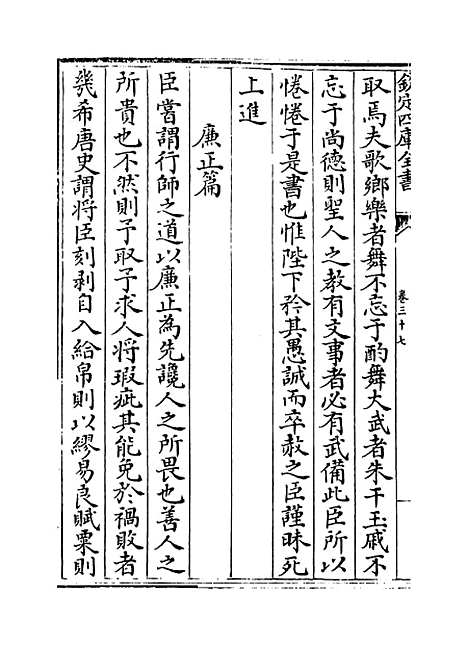 欽定四庫全書
卷三十七
取焉夫歌鄉樂者舞不忘于酌舞大武者朱干玉戚不
忘于尚德則聖人之教有文事者必有武備此臣所以
惓惓于是書也惟陛下矜其愚誠而卒赦之臣謹昧死
上進
廉正篇
臣嘗謂行師之道以廉正為先讒人之所畏也善人之
所貴也不然則予取予求人將瑕疵其能免於禍敗者
幾希唐史謂将臣刻剥自入給帛則以繆易良賦粟則